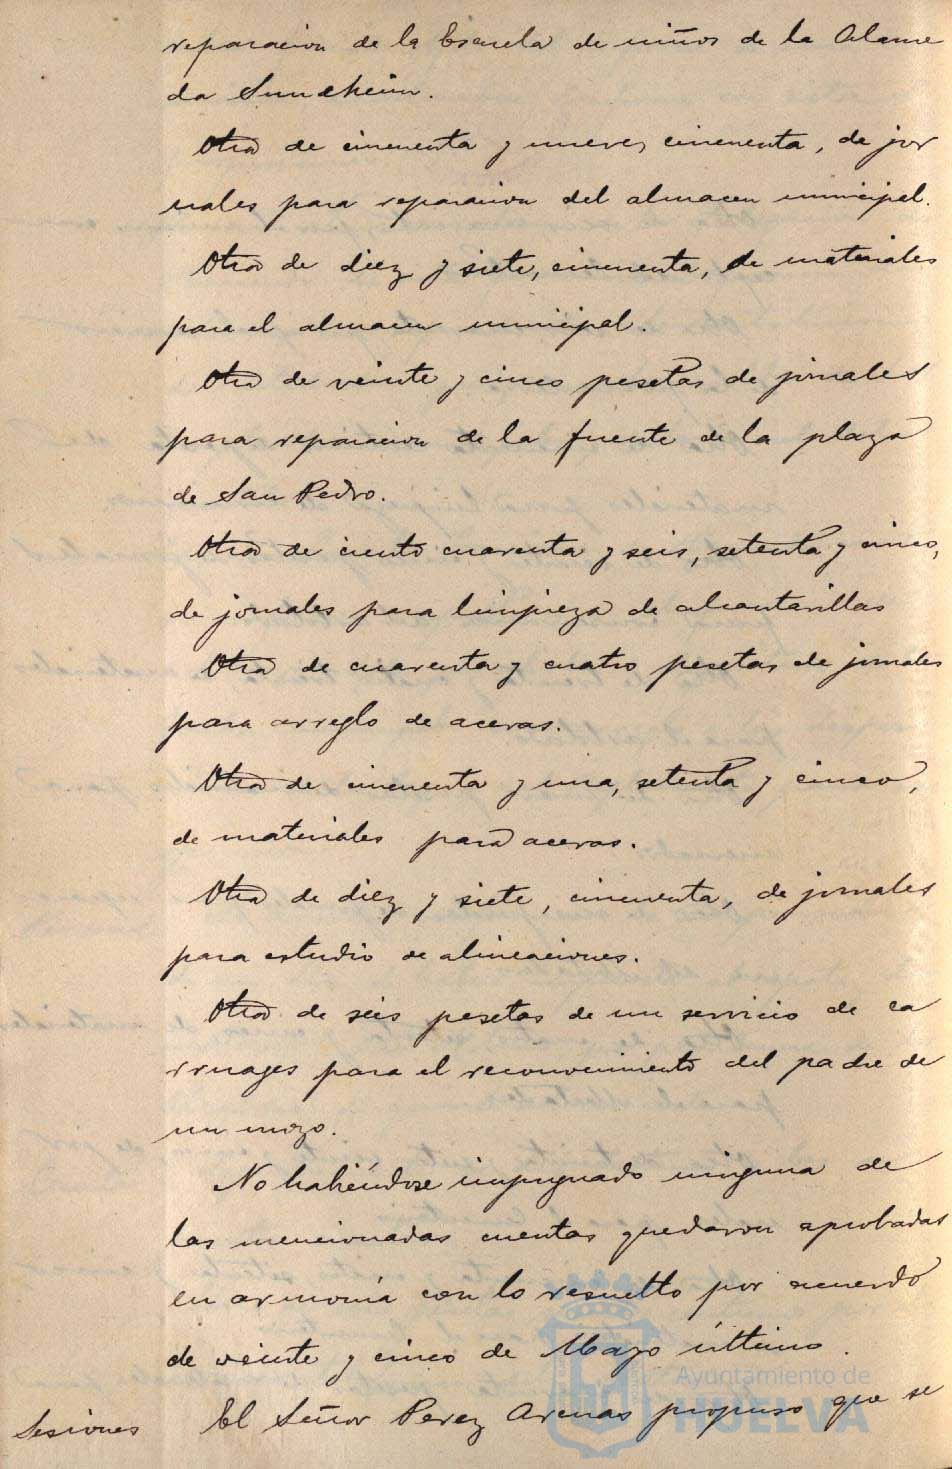 reparacion de la Escuela de niños de la Alame
da Sundheim.
Otra de cincuenta y nueve, cincuenta, de jor
nales para reparacion del almacen municipal.
Otra de diez y siete, cincuenta, de materiales
para el almacen municipal.
Otra de veinte y cinco pesetas de jornales
para reparacion de la fuente de la plaza
de San Pedro.
Otra de ciento cuarenta y seis, setenta y cinco,
de jornales para limpieza de alcantarillas
Otra de cuarenta y cuatro pesetas de jornales
para arreglo de aceras.
Otra de cincuenta y una, setenta y cinco,
de materiales para aceras.
Otra de diez y siete, cincuenta, de jornales
para estudio de alineaciones.
Otra de seis pesetas de un servicio de ca
rruages para el reconocimiento del padre de
un mozo.
No habiéndose impugnado ninguna de
las mencionadas cuentas quedaron aprobadas
en armonía con lo resuelto por acuerdo
de veinte y cinco de Mayo último.
Sesiones El Señor Perez Arenas propuso que se
Ayuntamiento de
HUELVA